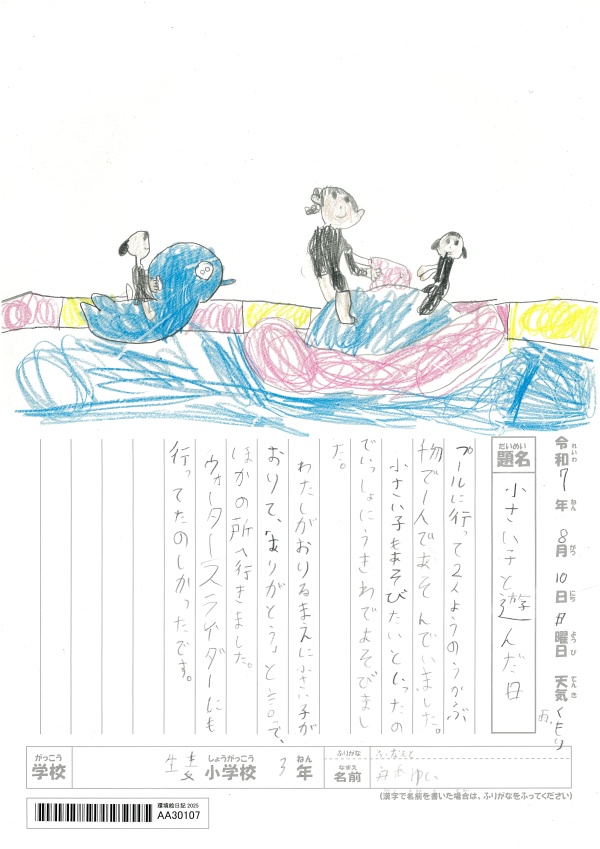 令和7年8月10日日曜日 天気くもり雨
れいわ ねん がつ にち ようび てんき
だいめい
題名 小さい子と遊んだ日
プールに行って2人ようのうかぶ
物で1人であそんでいました。
小さい子もあそびたいといったの
でいっしょにうきわであそびまし
た。
わたしがおりるまえに小さい子が
おりて、「ありがとう」と言って、
ほかの所へ行きました。
ウォータースライダーにも
行ってたのしかったです。
がっこう しょうがっこう ねん
学校 小学校 3年
ふりがな
なまえ
名前
(漢字で名前を書いた場合は、ふりがなをふってください)
環境絵日記 2025
AA30107